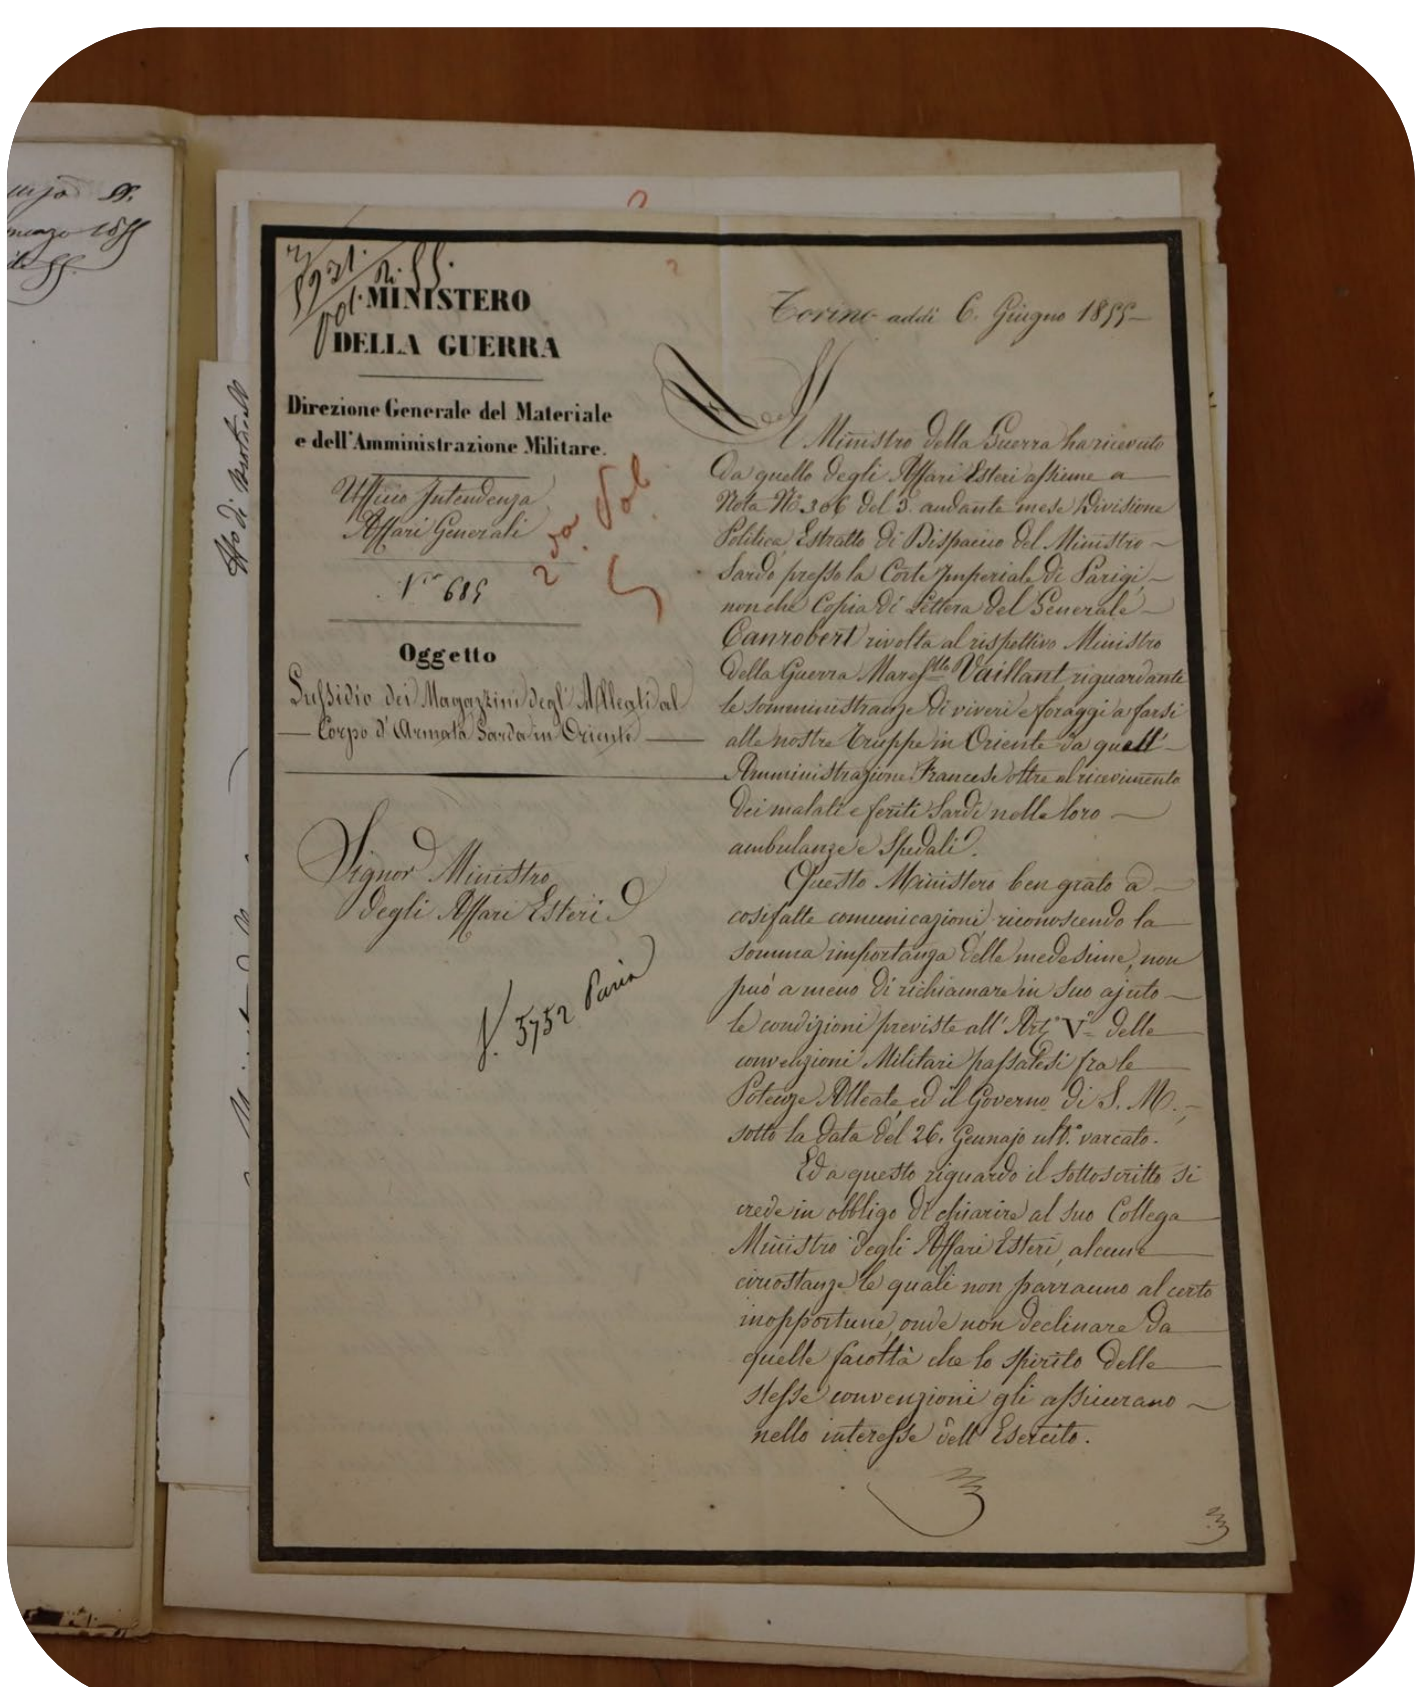 marzo 1855
5921.
Pol.
MINISTERO
DELLA GUERRA
Direzione Generale del Materiale
e dell'Amministrazione Militare.
Uffizio Intendenza
Affari Generali
N.º 685
Oggetto
Sussidio dei Magazzini degl'Alleati al
Corpo d'Armata Sarda in Oriente
Signor Ministro
degli Affari Esteri
f. 5752
2da Pol
Torino addì 6. Giugno 1855
Il Ministro della Guerra ha ricevuto
da quello degli Affari Esteri assieme a
Nota N.º 306 del 5. andante mese Divisione
Politica, Estratto di Dispaccio del Ministro
Sardo presso la Corte Imperiale di Parigi,
nonché Copia di Lettera del Generale
Canrobert rivolta al rispettivo Ministro
della Guerra Maresllo Vaillant, riguardante
le somministranze di viveri e foraggi a farsi
alle nostre Truppe in Oriente da quell'
Amministrazione Francese oltre al ricevimento
dei malati e feriti Sardi nelle loro
ambulanze e Spedali.
Questo Ministero ben grato a
cosifatte comunicazioni, riconoscendo la
somma importanza delle medesime, non
può a meno di richiamare in suo ajuto
le condizioni previste all'Art.º Vº delle
convenzioni Militari passatesi fra le
Potenze Alleate, ed il Governo di S. M.,
sotto la data del 26. Gennajo ult.º varcato.
Ed a questo riguardo il sottoscritto si
crede in obbligo di chiarire al suo Collega
Ministro degli Affari Esteri, alcune
circostanze le quali non parranno al certo
inopportune, onde non declinare da
quelle facoltà che lo spirito delle
stesse convenzioni gli assicurano
nello interesse dell'Esercito.